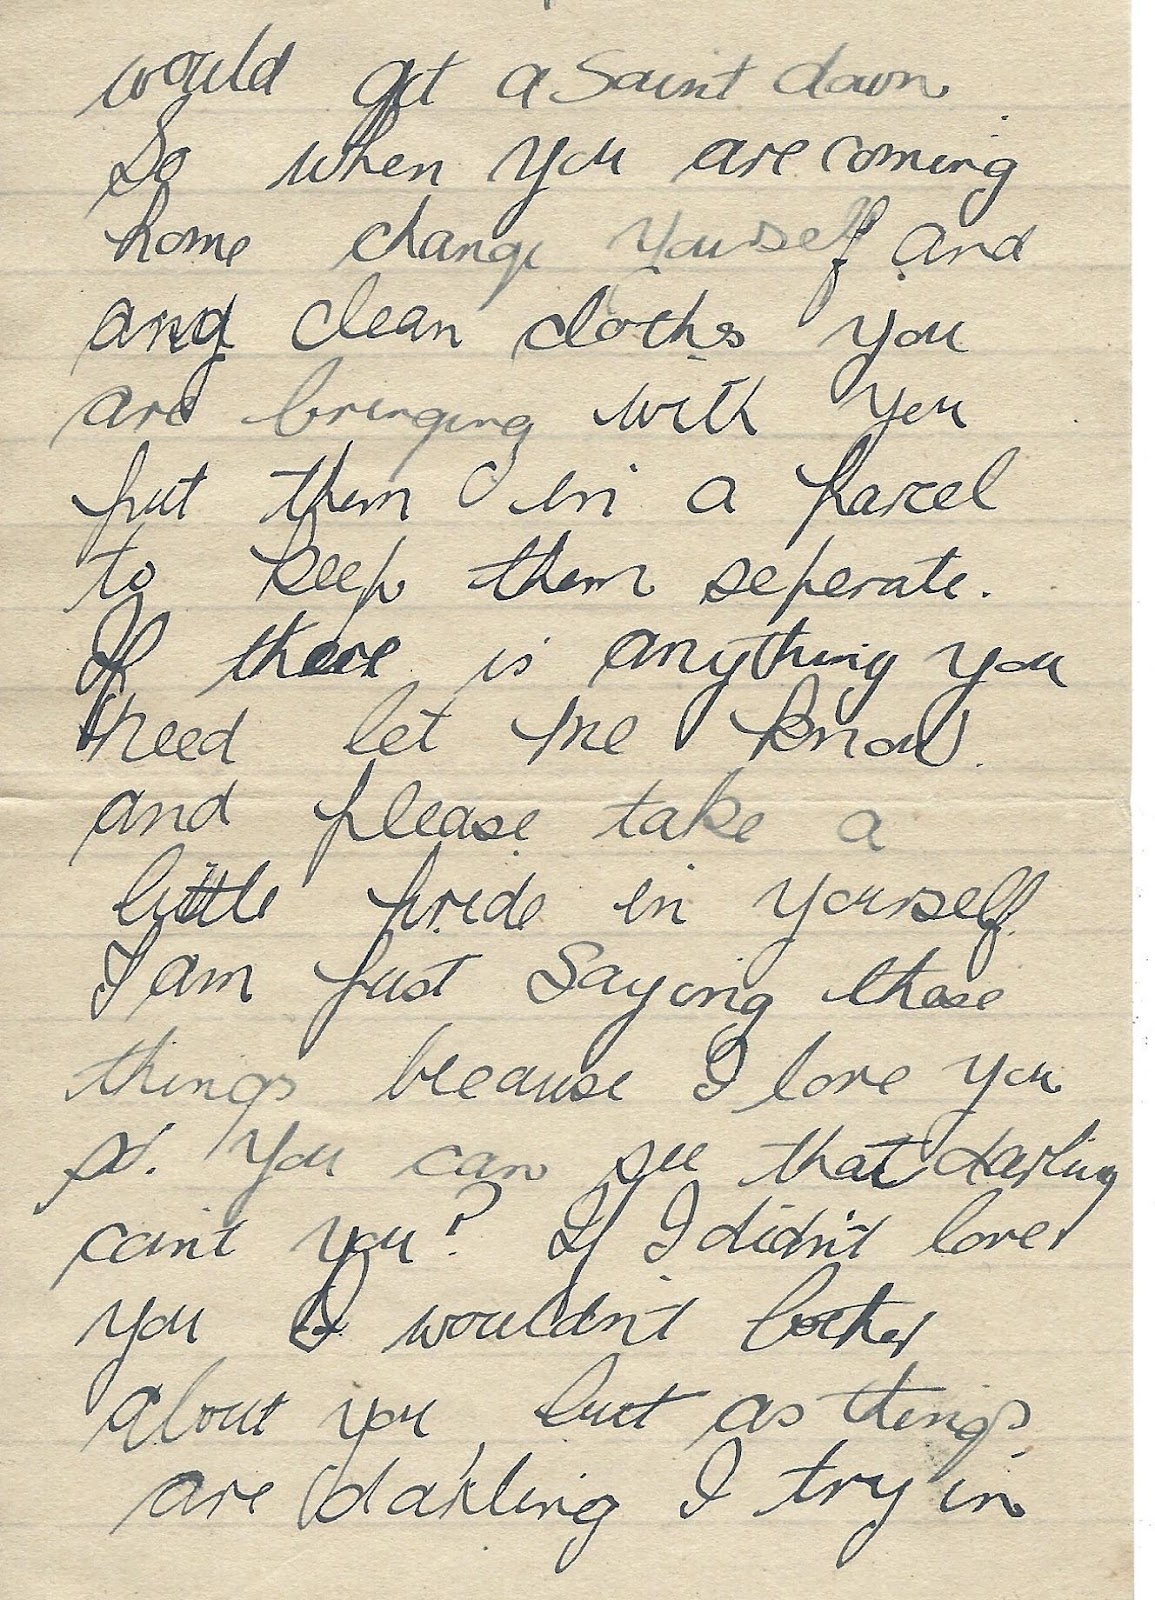 would get a Saint down
So when you are coming
home change yourself and
and clean cloths you
are bringing with you
put them in a parcel
to keep them seperate.
If there is anything you
need let me know.
and please take a
little pride in yourself.
I am just Saying these
things because I love you
x. You can see that darling
can't you? If I didn't love
you I wouldn't bother
about you, but as things
are darling I try in